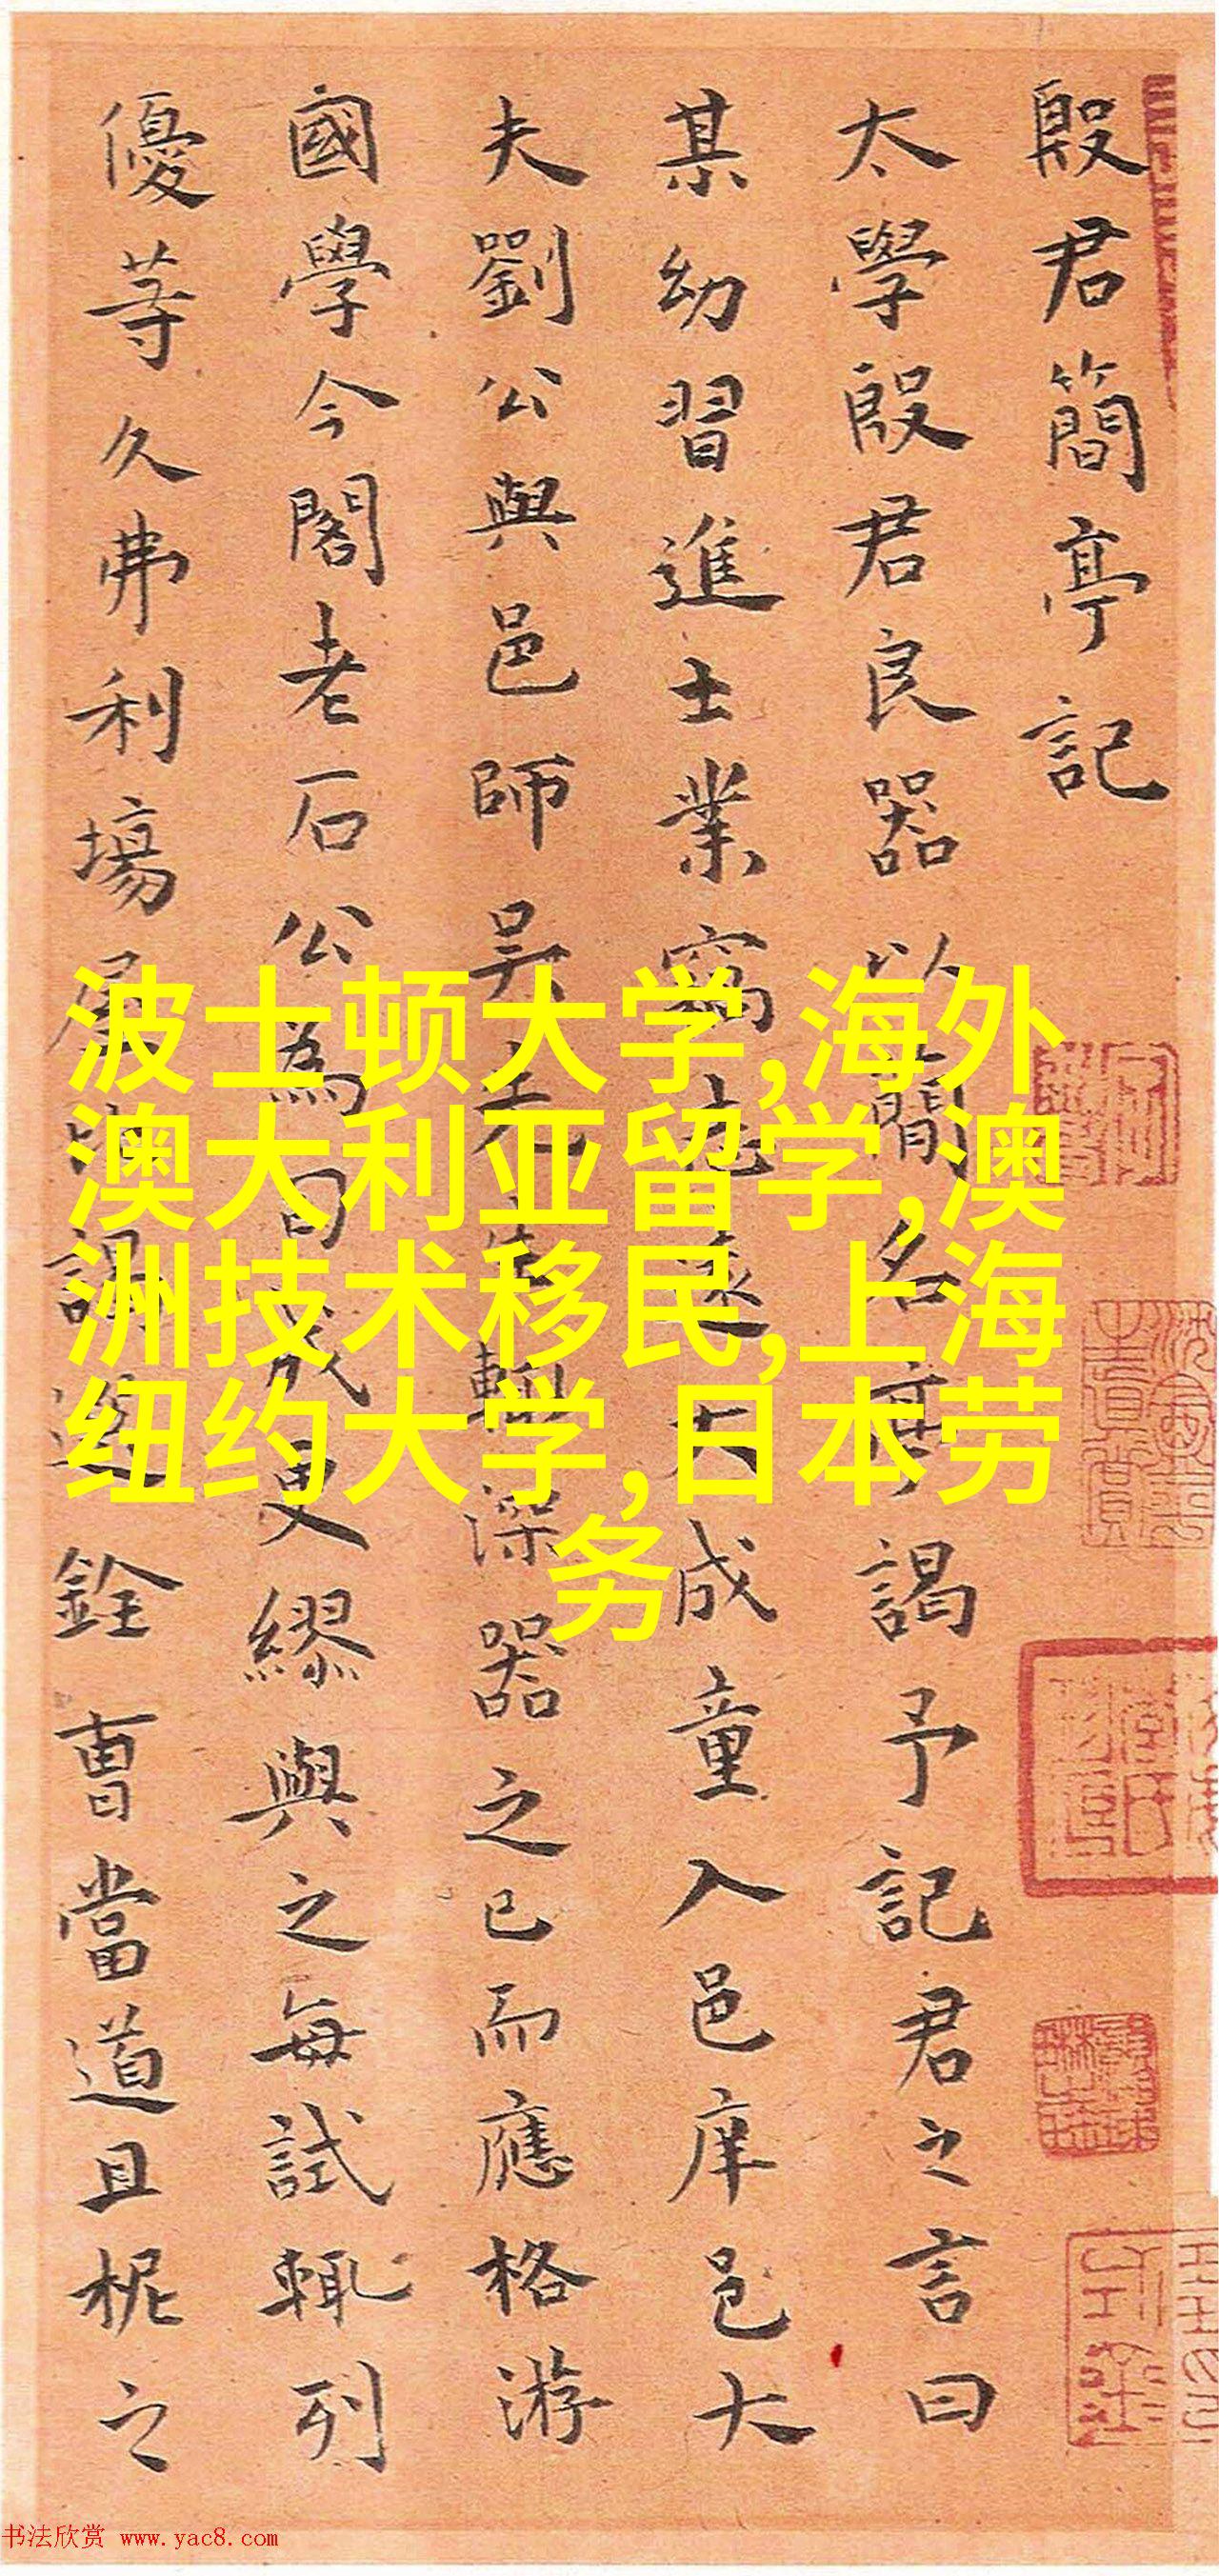 殷君簡亭記
太學殷君良器以簡名亭謁予記君之言曰
某幼習進士業竊志遠大成童入邑庠邑大
夫劉公與邑師吴先生輙深器之已而應格游
國學今閣老石公為司成更繆與之每試輙列
優等久弗利塲屋比謁選銓曹當道且柅之
波士顿大学,海外
澳大利亚留学,澳
洲技术移民,上海
纽约大学,日本劳
务
书法欣赏 www.yac8.com